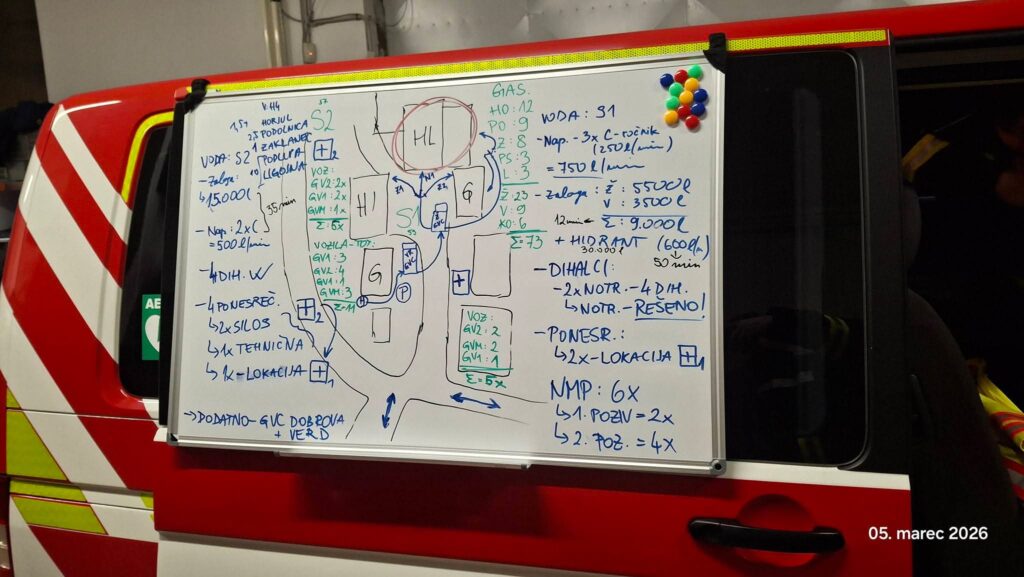 V.H4
1,5h HORJUL
25 PODOLNICA
1 ZAKLANEC
PODLIPA
10 LIGOJNA
VODA: S2
- Zaloga:
↳ 15.000 l
35 min
- Nap.: 2x C
= 500 l/min
- 4 DIH. W
- 4 PONESREČ.
↳ 2x SILOS
↳ 1x TEHNIČNA
↳ 1x - LOKACIJA + 1
→ DODATNO - GVC DOBROVA
+ VERD
S2
+ 2
VOZ:
GV2: 2x
GV1: 2x
GVM: 1x
Σ: 5x
VOZILA - TOT:
GV1: 3
GV2: 4
GV1: 1
GVM: 3
Σ = 11
+ 2
+ 1
HL
HI
G
S1
G
GVC
GVC
H
P
+
VOZ:
GV2: 2
GVM: 2
GV1: 1
Σ = 5x
GAS.
HO: 12
PO: 9
Z: 8
PS: 3
L: 3
Ž: 23
V: 9
KO: 6
Σ: 73
VODA: S1
- Nap. - 3x C - ročnik
(250 l/min)
= 750 l/min
- zaloga: Ž: 5500 l
V: 3500 l
12 min ← Σ: 9.000 l
+ HIDRANT (600 l/m)
30.000 l
50 min
- DIHALCI:
- 2x NOTR. - 4 DIH.
↳ NOTR. - REŠENO!
- PONESR.:
↳ 2x - LOKACIJA + 1
NMP: 6X
↳ 1. POZIV = 2x
↳ 2. POZ. = 4x
AE
05. marec 2026